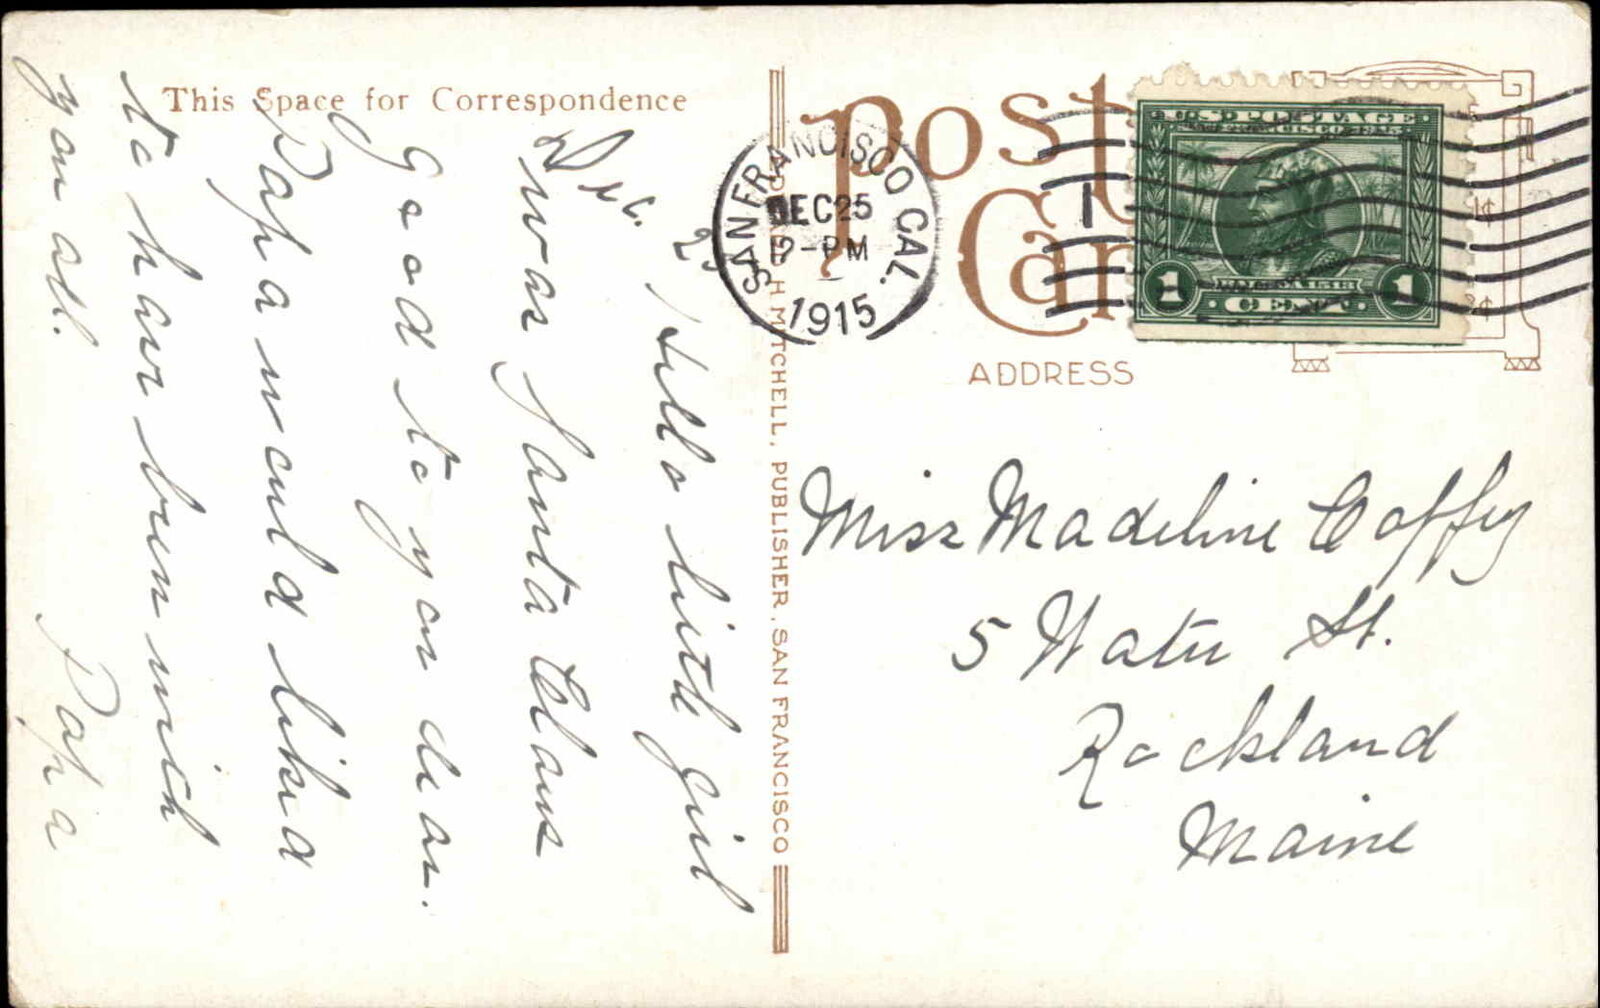 This Space for Correspondence
Dec. 25
Hello little girl
was Santa Claus
Good to you dear.
Papa would liked
to have been with
you all.
Papa
EDWARD H MITCHELL, PUBLISHER, SAN FRANCISCO
Post
Car
SAN FRANCISCO CAL.
DEC 25
-PM
1915
1
U.S. POSTAGE
SAN FRANCISCO 1915
BALBOA 1513
1 CENT 1
1¢
2¢
ADDRESS
Miss Madeline Coffey
5 Water St.
Rockland
Maine